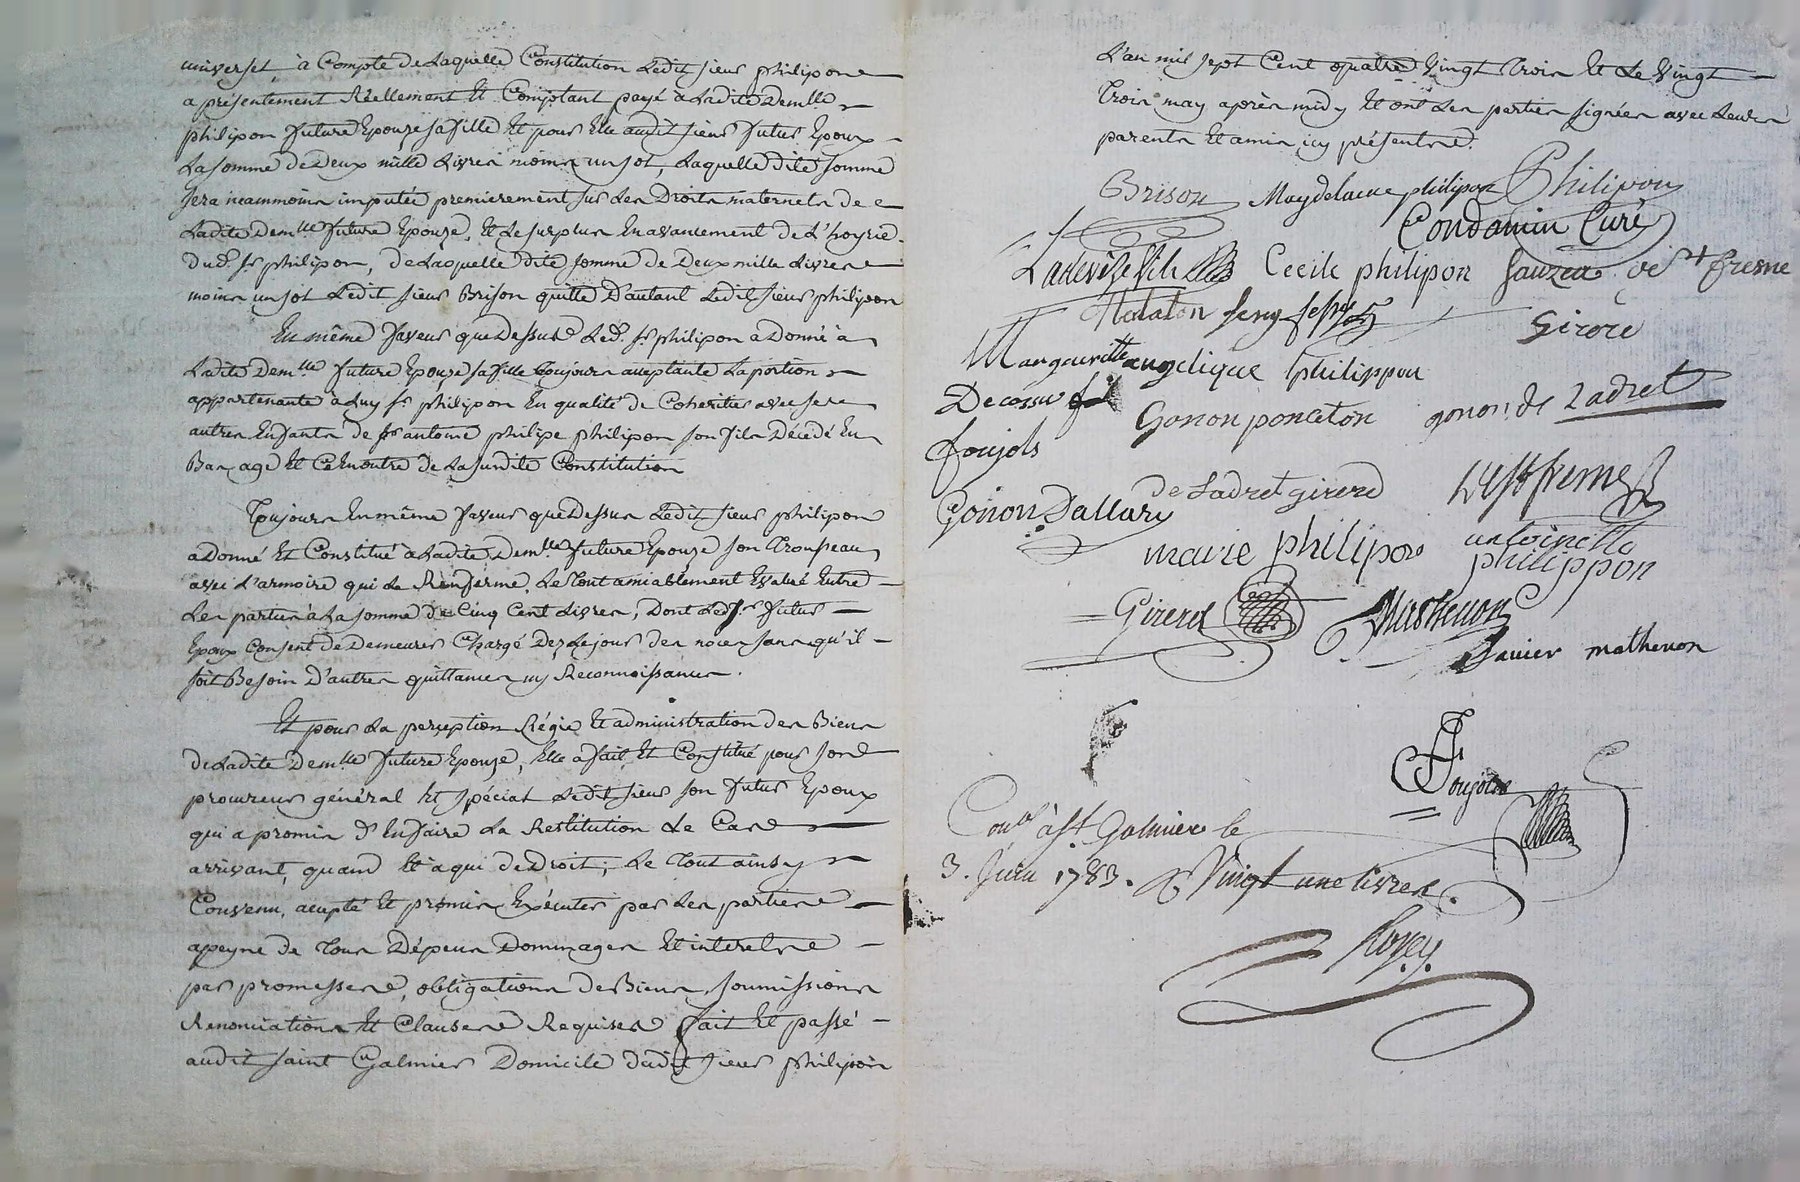 universel, à Compte de Laquelle Constitution Ledit sieur philipon
a présentement Réellement Et Comptant payé à Ladite Demlle
philipon future Epouze sa fille Et pour Elle audit sieur futur Epoux
La somme de Deux mille Livres moins un sol, Laquelle dite somme
sera neammoins imputée premierement sur Les Droits maternels de
Ladite Demlle future Epouze, Et Le surplus En avancement de L'hoyrie
dud. sr philipon, de Laquelle dite somme de Deux mille Livres
moins un sol Ledit sieur Brison quitte D'autant Ledit sieur philipon
En même faveur que Dessus Led. sr philipon a Donné à
Ladite Demlle future Epouze sa fille toujours acceptante La portion
appartenante à Luy sr philipon En qualité de Coheritier avec ses
autres Enfants de sr antoine philipe philipon son fils Décédé En
Bas age Et Ce En outre de La susdite Constitution
Toujours En même faveur que Dessus Ledit sieur philipon
a Donné Et Constitué à Ladite Demlle future Epouze son Trousseau
avec L'armoire qui Le Renferme, Le Tout amiablement Evalué Entre
Les parties à La somme de Cinq Cent Livres, Dont Led. sr futur
Epoux Consent de Demeurer Chargé Dez Le jour des noces sans qu'il
soit Besoin D'autres quittances ny Reconnoissances.
Et pour La perception Régie Et administration des Biens
de Ladite Demlle future Epouze, Elle a fait Et Constitué pour son
procureur général Et spécial Ledit sieur son futur Epoux
qui a promis D'En faire La Restitution Le Cas
arrivant, quand Et a qui de Droit; Le Tout ainsy
Convenu, accepté Et promis Exécuter par Les parties
a peyne de Tous Dépens Dommages Et interets
par promesses, obligations de Biens, soumissions
Renonciations Et Clauses Requises fait Et passé
audit saint Galmier Domicile dudit sieur philipon
L'an mil sept Cent quatre Vingt Trois Et Le Vingt
Trois may après midy Et ont Les parties signées avec Leurs
parents Et amis icy présents.
Brison Magdelaine philipon Philipon
Condamin Curé
Ladevèze Cecile philipon Sauzea de st fresne
Girore
Margueritte angelique Philippon
Decossu
Gonon ponceton gonon de Ladret
foujols
de Ladret girerd
Gonon Dallary
marie philipon antoinette
philippon
Girerd Mathevon
Xavier mathevon
Foujols
Conlé à St. Galmier le
3. Juin 1783. R Vingt une livres
Rozey